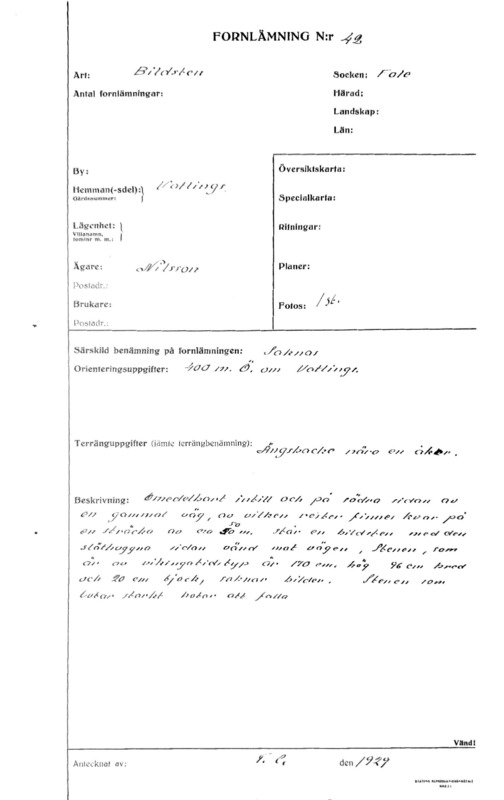 FORNLÄMNING N:r 42
Art: Bildsten
Socken: Fole
Antal fornlämningar:
Härad:
Landskap:
Län:
By:
Hemman(-sdel):
Gårdsnummer:
Vatlings.
Lägenhet:
Villanamn,
tomtnr m. m.:
Ägare: Nilsson
Postadr.:
Brukare:
Postadr.:
Översiktskarta:
Specialkarta:
Ritningar:
Planer:
Fotos: 1 st.
Särskild benämning på fornlämningen: Saknas
Orienteringsuppgifter: 400 m. Ö. om Vatlings.
Terränguppgifter (jämte terrängbenämning): Ängsbacke nära en åker.
Beskrivning: Omedelbart intill och på södra sidan av
en gammal väg, av vilken rester finnes kvar på
en sträcka av ca 50 m. står en bildsten med den
släthuggna sidan vänd mot vägen. Stenen, som
är av vikingatidstyp är 170 cm. hög 96 cm bred
och 20 cm tjock, saknar bilder. Stenen som
lutar starkt hotar att falla
Vänd!
Antecknat av:
den 1929